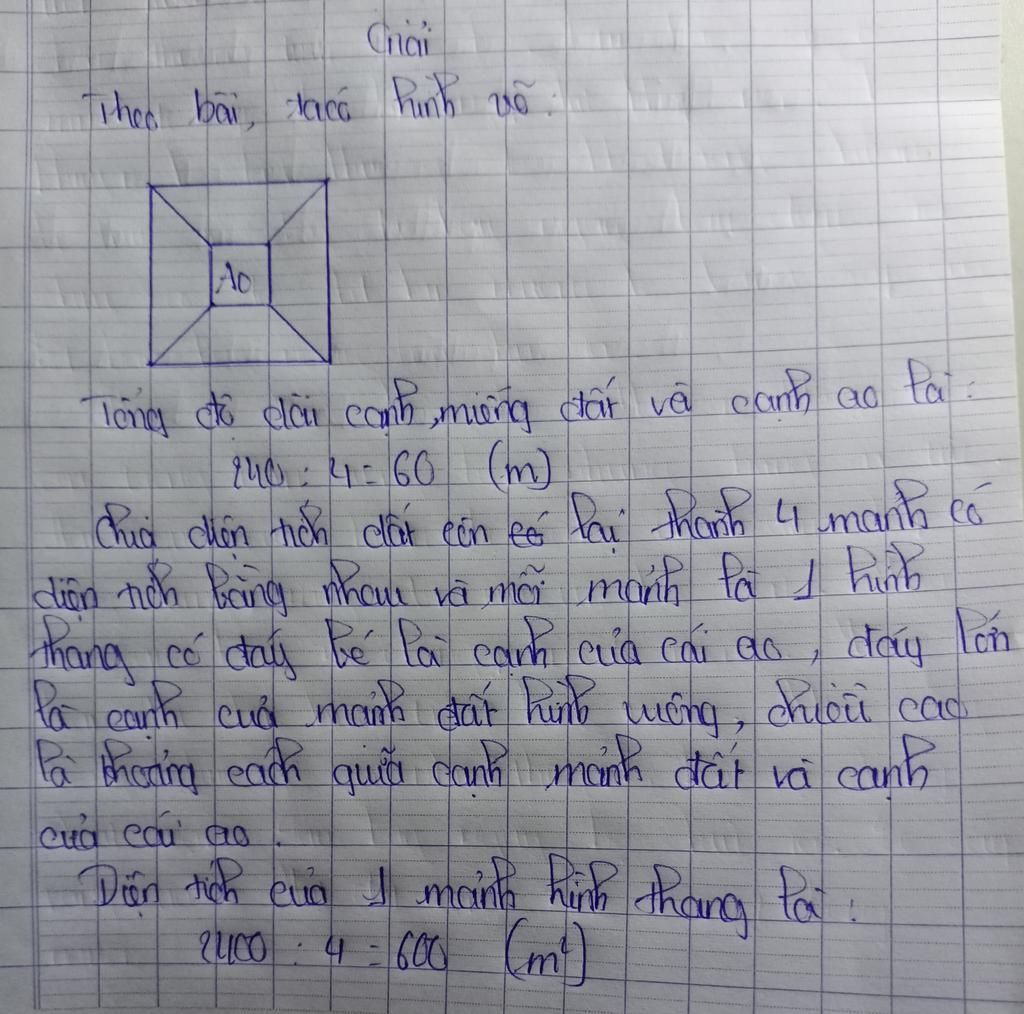 Giải
Theo bài, ta có hình vẽ:
Ao
Tổng độ dài cạnh miếng đất và cạnh ao là:
240 : 4 = 60 (m)
Chia diện tích đất còn lại thành 4 mảnh có
diện tích bằng nhau và mỗi mảnh là 1 hình
thang có đáy bé là cạnh của cái ao, đáy lớn
là cạnh của mảnh đất hình vuông, chiều cao
là khoảng cách giữa cạnh mảnh đất và cạnh
của cái ao.
Diện tích của 1 mảnh hình thang là:
2400 : 4 = 600 (m²)